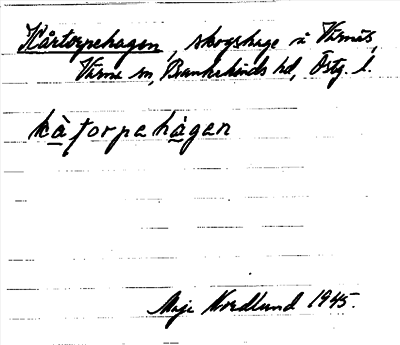 Kårtorpehagen, skogshage å Värnäs,
Värna sn, Bankekinds hd, Östg. l.
kȧ̀torpehȧgan
Maja Nordlund 1945.